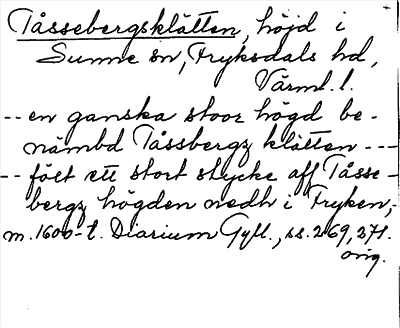 Tåssebergsklätten, höjd i
Sunne sn, Fryksdals hd,
Värml. l.
-- en ganska stoor högd be-
nämbd Tåssbergz klätten ---
-- föet ett stort stycke aff Tåsse-
bergz högden nedh i Fryken,-
m. 1600-t. Diarium Gyll., ss. 269, 271.
orig.